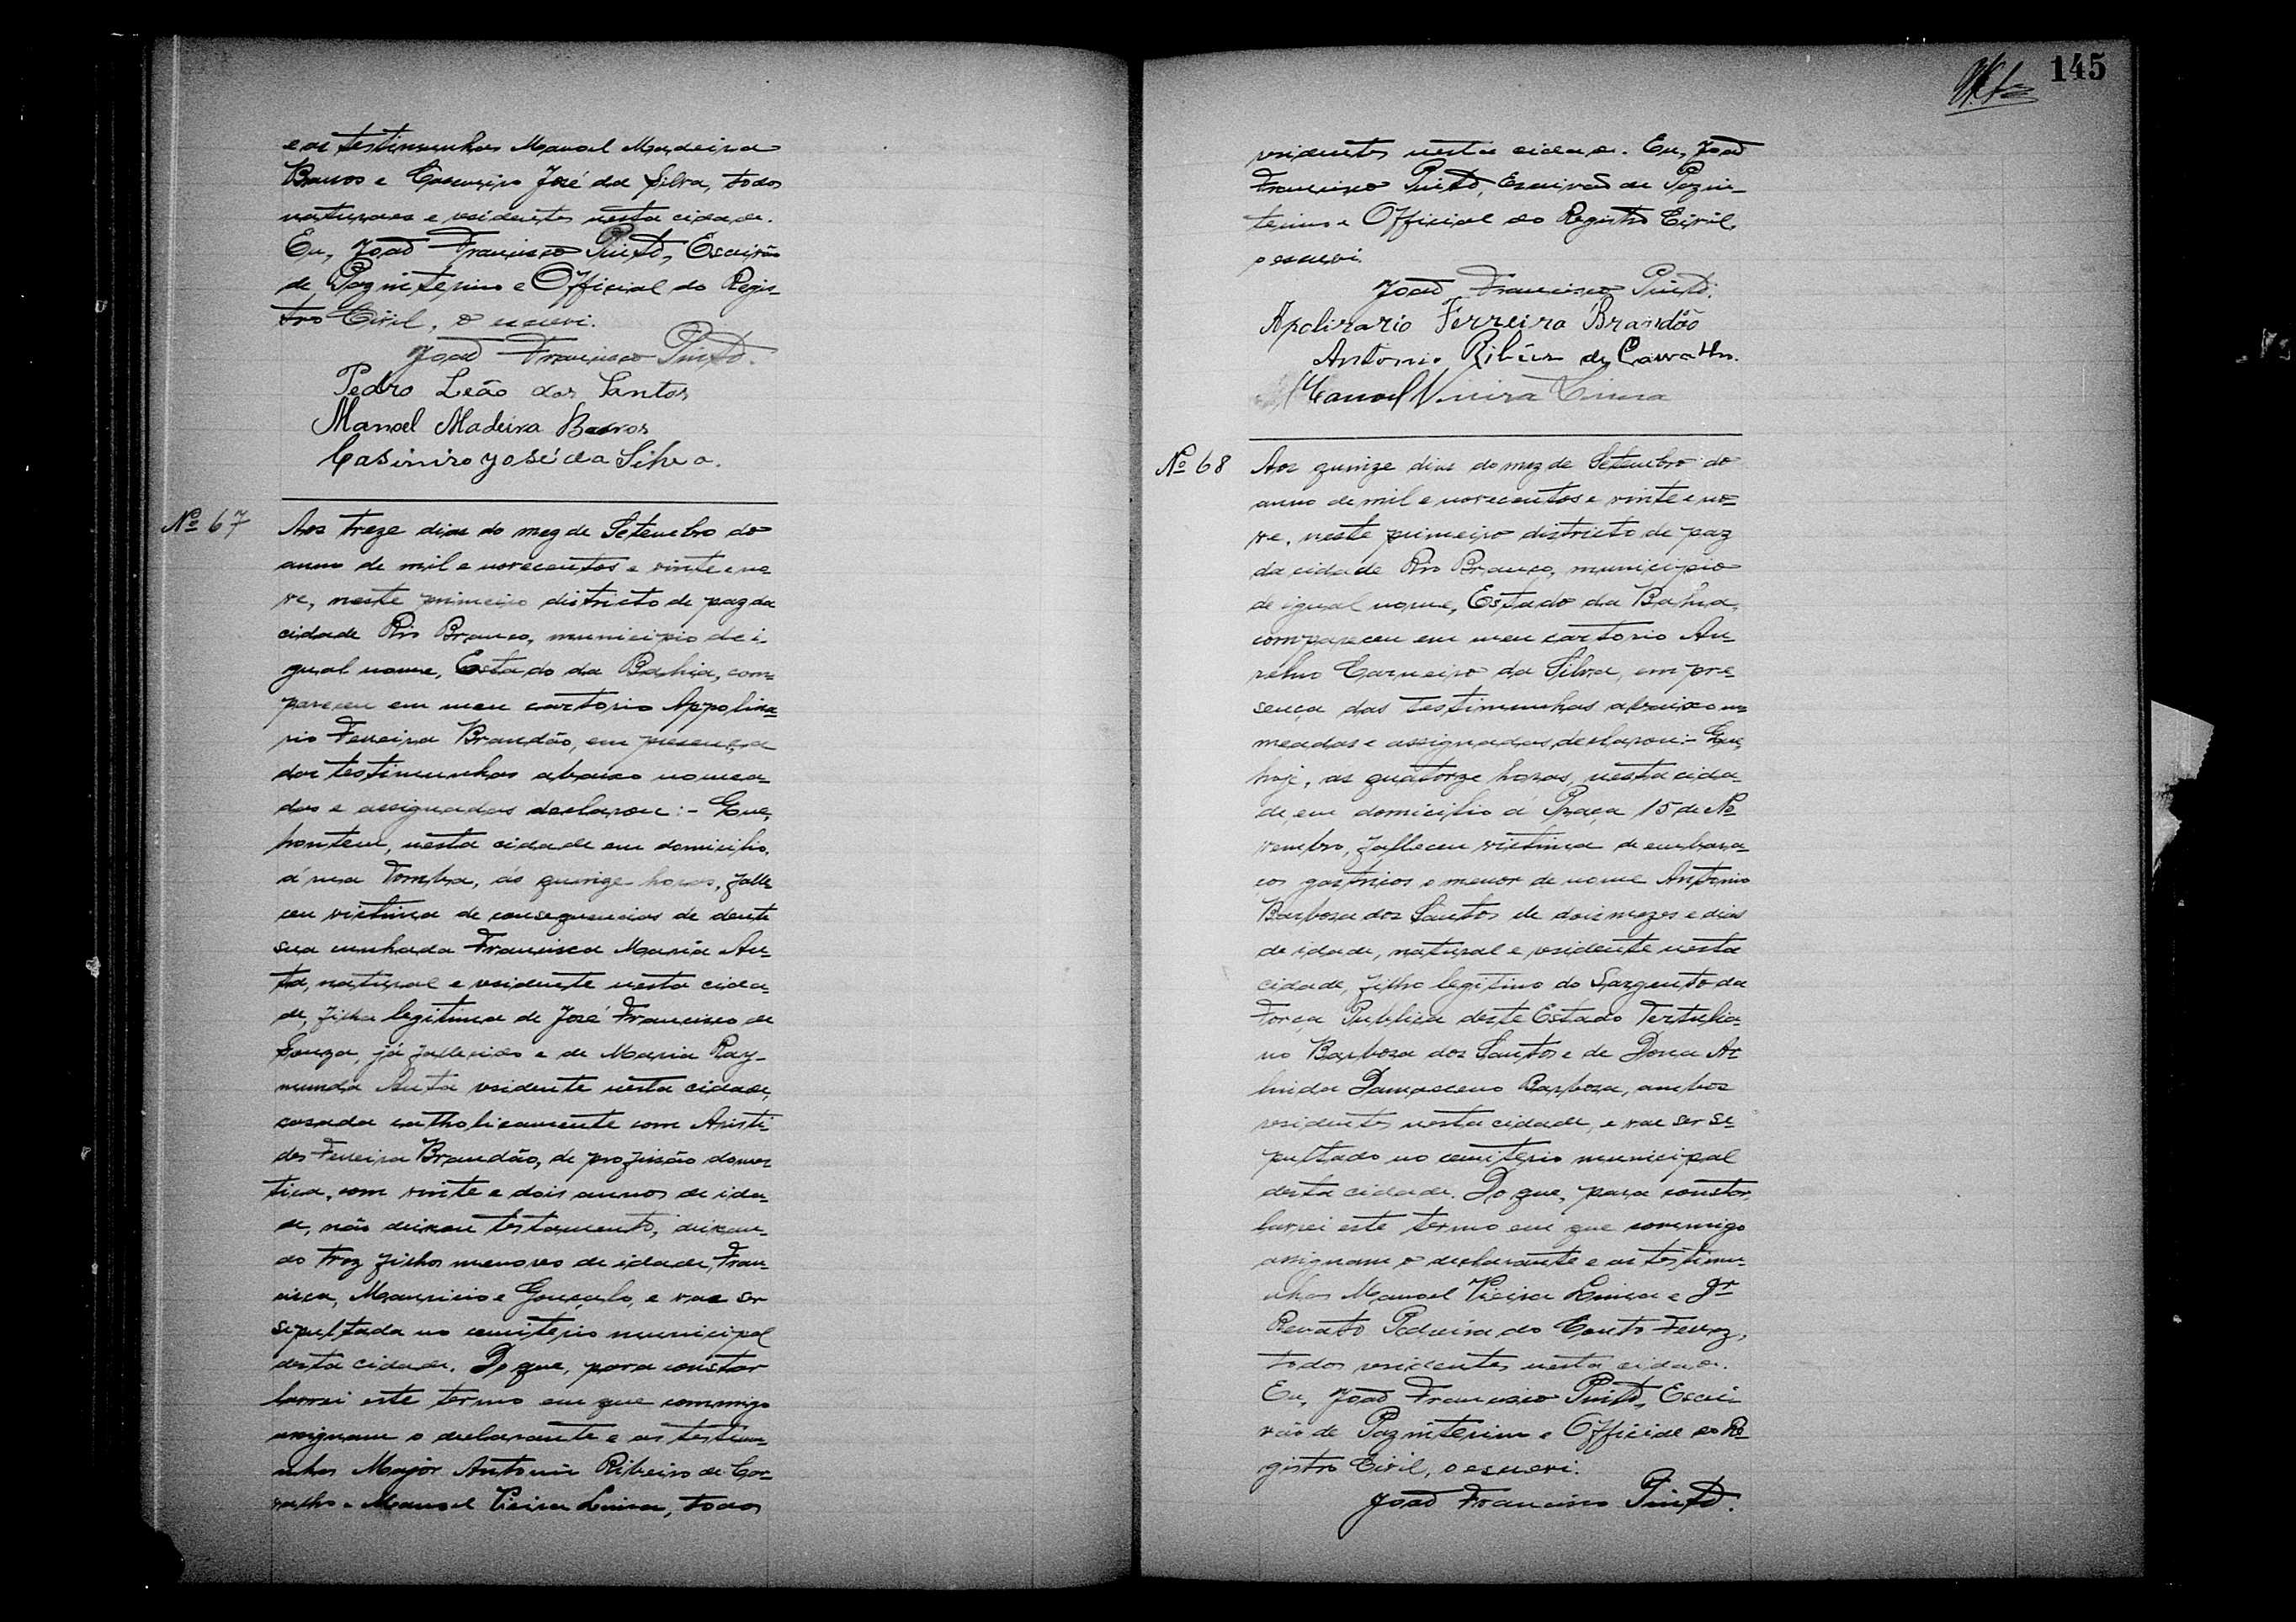 e as testimunhas Manoel Madeira
Barros e Casimiro José da Silva, todos
naturaes e residentes nesta cidade.
Eu, João Francisco Pinto, Escrivão
de Paz interino e Official do Regis-
tro Civil, o escrevi.
João Francisco Pinto.
Pedro Leão dos Santos
Manoel Madeira Barros
Casimiro José da Silva.
Nº 67
Aos treze dias do mez de Setembro do
anno de mil e novecentos e vinte e no-
ve, neste primeiro districto de paz da
cidade Rio Branco, municipio de i-
gual nome, Estado da Bahia, com-
pareceu em meu cartorio Appolina-
rio Ferreira Brandão, em presença
das testimunhas abaixo nomea-
das e assignadas declarou:- Que,
hontem, nesta cidade em domicilio,
á rua Tomba, ás quinze horas, falle
ceu victima de consequencias de dente
sua cunhada Francisca Maria An-
ta, natural e residente nesta cida-
de, filha legitima de José Francisco de
Souza, já fallecido e de Maria Ray-
munda Anta residente nesta cidade,
casada catholicamente com Aristi-
des Ferreira Brandão, de profissão domes
tica, com vinte e dois annos de ida-
de, não deixou testamento, deixan-
do trez filhos menores de idade, Fran-
cisca, Mauricio e Gonçalo, e vae ser
sepultada no cemiterio municipal
desta cidade. Do que, para constar
lavrei este termo em que commigo
assignam o declarante e as testimu-
nhas Major Antonio Ribeiro de Car-
valho e Manoel Vieira Lima, todos
145
residentes nesta cidade. Eu, João
Francisco Pinto, Escrivão de Paz in-
terino e Official do Registro Civil,
o escrevi.
João Francisco Pinto.
Apolinario Ferreira Brandão
Antonio Ribeiro de Carvalho.
Manoel Vieira Lima
Nº 68
Aos quinze dias do mez de Setembro do
anno de mil e novecentos e vinte e no-
ve, neste primeiro districto de paz
da cidade Rio Branco, municipio
de igual nome, Estado da Bahia,
compareceu em meu cartorio Au-
relino Carneiro da Silva, em pre-
sença das testimunhas abaixo no-
meadas e assignadas, declarou:- Que,
hoje, ás quatorze horas, nesta cida-
de, em domicilio á Praça 15 de No-
vembro, falleceu victima de embara-
ços gastricos o menor de nome Antonio
Barbosa dos Santos de dois mezes e dias
de idade, natural e residente nesta
cidade, filho legitimo do Sargento da
Força Publica deste Estado Tertulia-
no Barbosa dos Santos e de Dona
Damasceno Barbosa, ambos
residentes nesta cidade, e vae ser se-
pultado no cemiterio municipal
desta cidade. Do que, para constar,
lavrei este termo em que commigo
assignam o declarante e as testimu-
nhas Manoel Vieira Lima e Dr
Renato Pedreira do Couto Ferraz,
todos residentes nesta cidade.
Eu, João Francisco Pinto, Escri-
vão de Paz interino e Official do Re-
gistro Civil, o escrevi.
João Francisco Pinto.